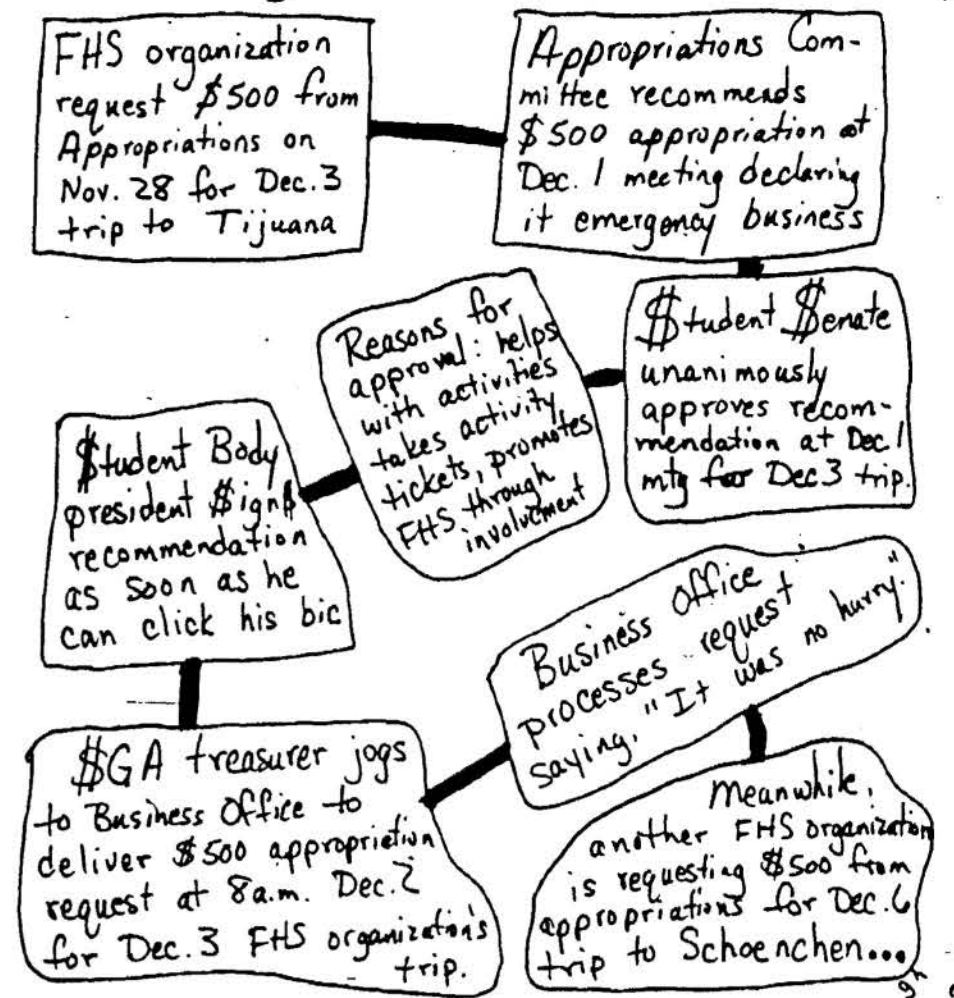 FHS organization
request $500 from
Appropriations on
Nov. 28 for Dec. 3
trip to Tijuana
Appropriations Com-
mittee recommends
$500 appropriation at
Dec. 1 meeting declaring
it emergency business
$tudent $enate
unanimously
approves recom-
mendation at Dec 1
mtg for Dec 3 trip.
Reasons for
approval: helps
with activities
takes activity
tickets, promotes
FHS through
involvement
$tudent Body
president $ign$
recommendation
as soon as he
can click his bic
$GA treasurer jogs
to Business Office to
deliver $500 appropriation
request at 8a.m. Dec. 2
for Dec. 3 FHS organization's
trip.
Business office
processes request
saying, "It was no hurry."
Meanwhile,
another FHS organization
is requesting $500 from
appropriations for Dec. 6
trip to Schoenchen...